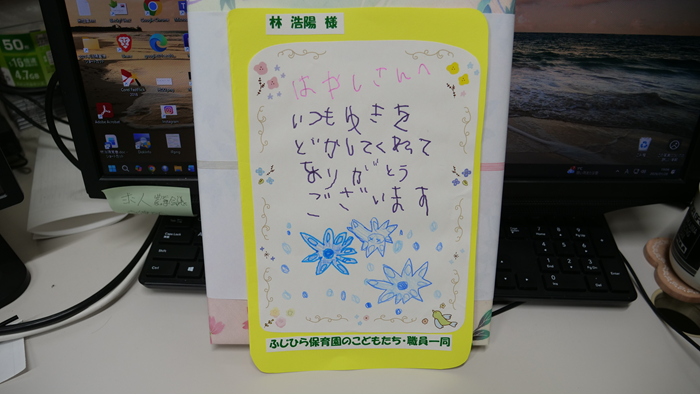 林 浩陽 様
はやしさんへ
いつもゆきを
どかしてくれって
ありがとう
ございます
ふじひら保育園のこどもたち・職員一同
50
4.7